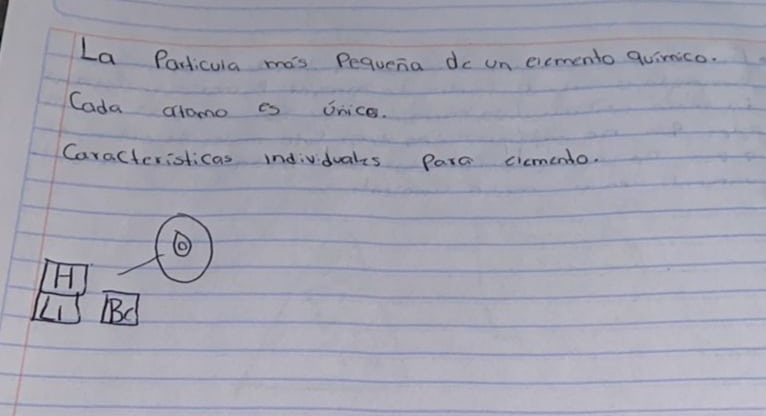 La Particula más Pequeña de un elemento químico.
Cada atomo es único.
Características individuales para elemento.
H
Li Be